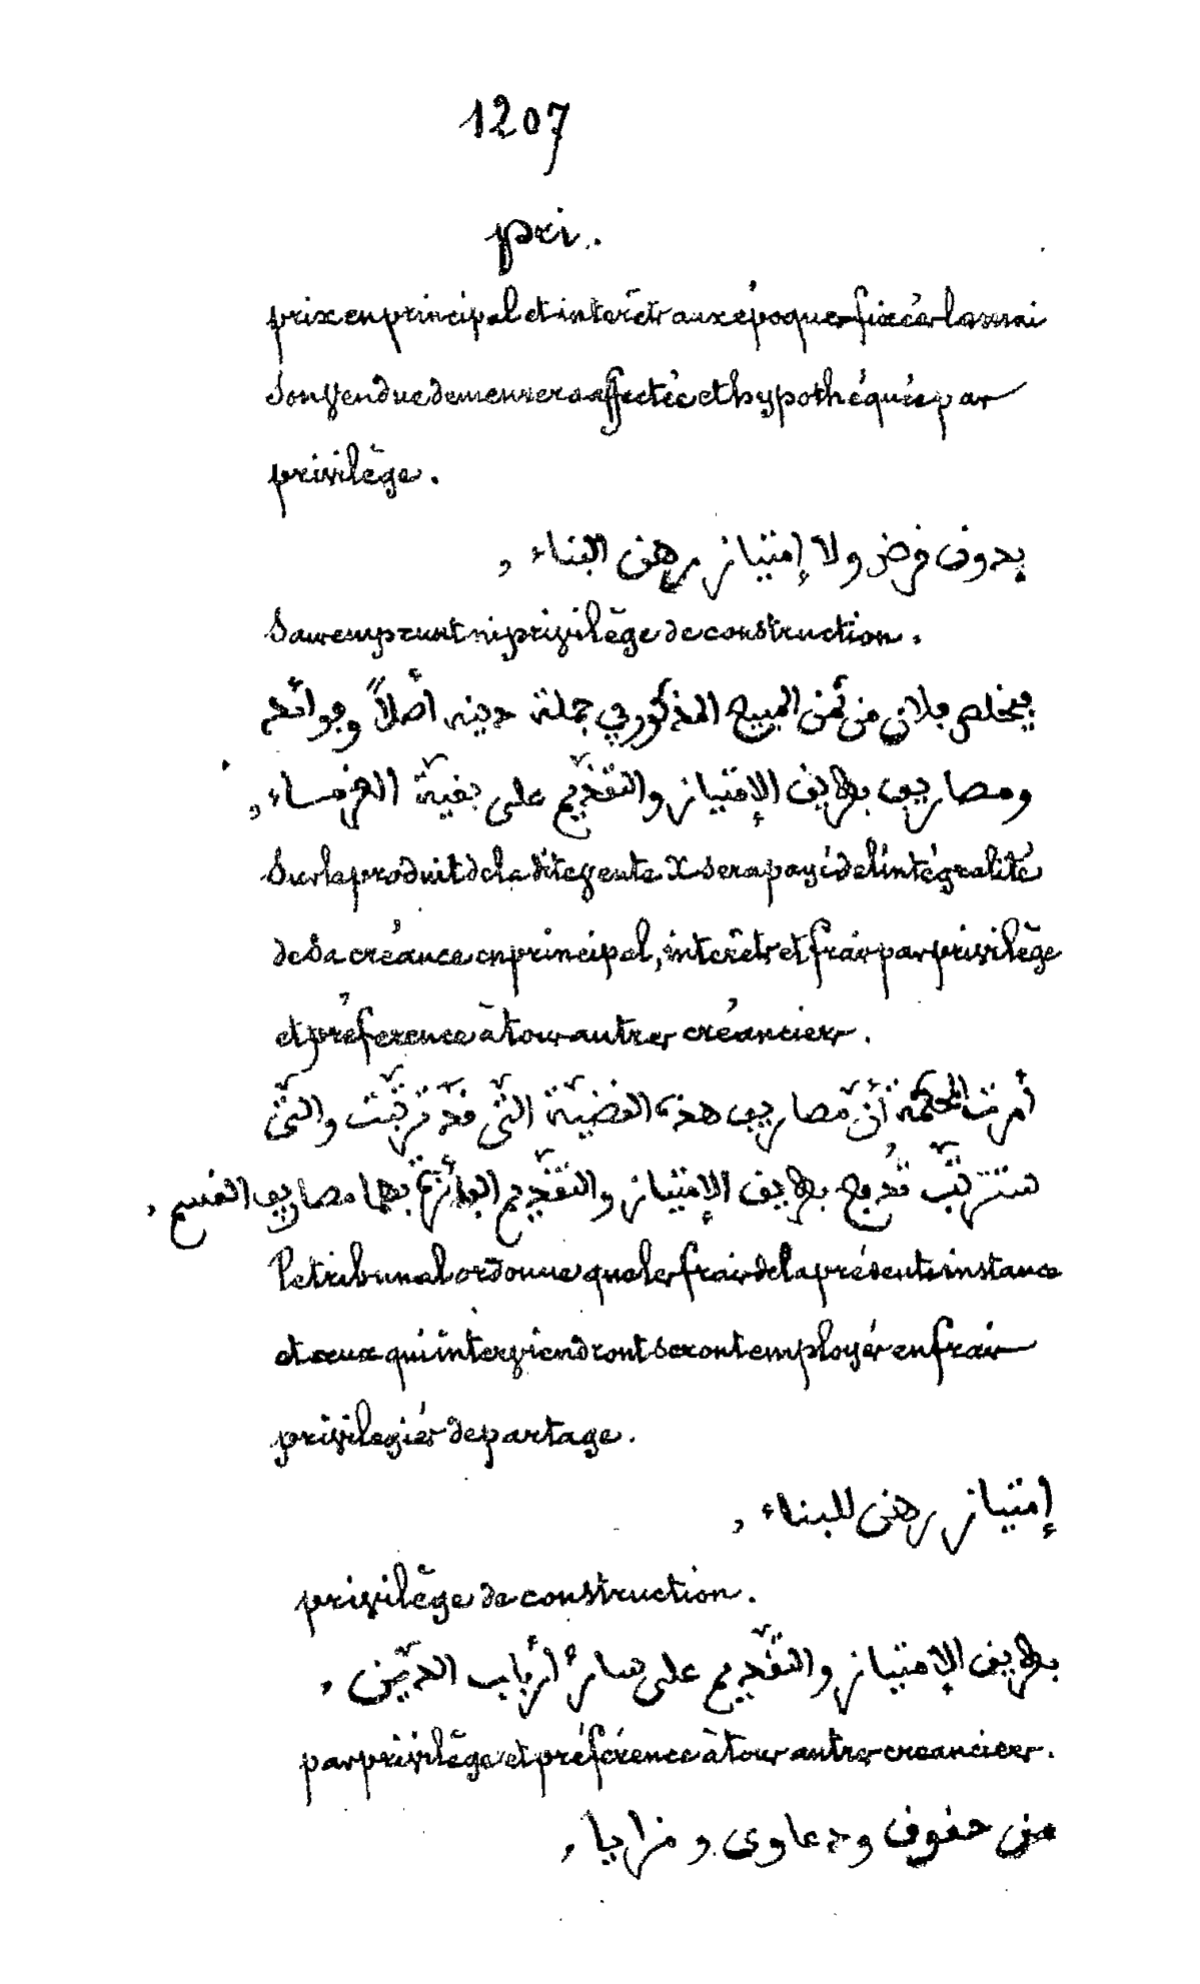 1207
pri.
prix en principal et intérêts aux époques fixées la mai
son vendue demeurera affectée et hypothéquée par
privilège.
بدون قرض ولا إمتياز رهن البناء ,
Sans emprunt ni privilège de construction.
يخلص فلان من ثمن المبيع المذكور في جملة دينه أصلاً وفوائده
ومصاريف بطريق الإمتياز والتقدّيم على بقيّة الغرماء ,
Sur le produit de la dite vente X sera payé de l'intégralité
de sa créance en principal, intérêts et frais par privilège
et préference à tous autres créanciers.
أمرت المحكمة أنّ مصاريف هذه القضيّة التّي قد ترتّبت والتّي
ستترتّب تُدرج بطريق الإمتياز والتقدّيم بهما مصاريف القسم ,
Le tribunal ordonne que les frais de la présente instance
et ceux qui interviendront seront employés en frais
privilegiés de partage.
إمتياز رهن للبناء ,
privilège de construction.
بطريق الإمتياز والتقدّيم على سائر أرباب الديّن ,
par privilège et préférence à tous autres creanciers.
من حقوق ودعاوى ومزايا ,